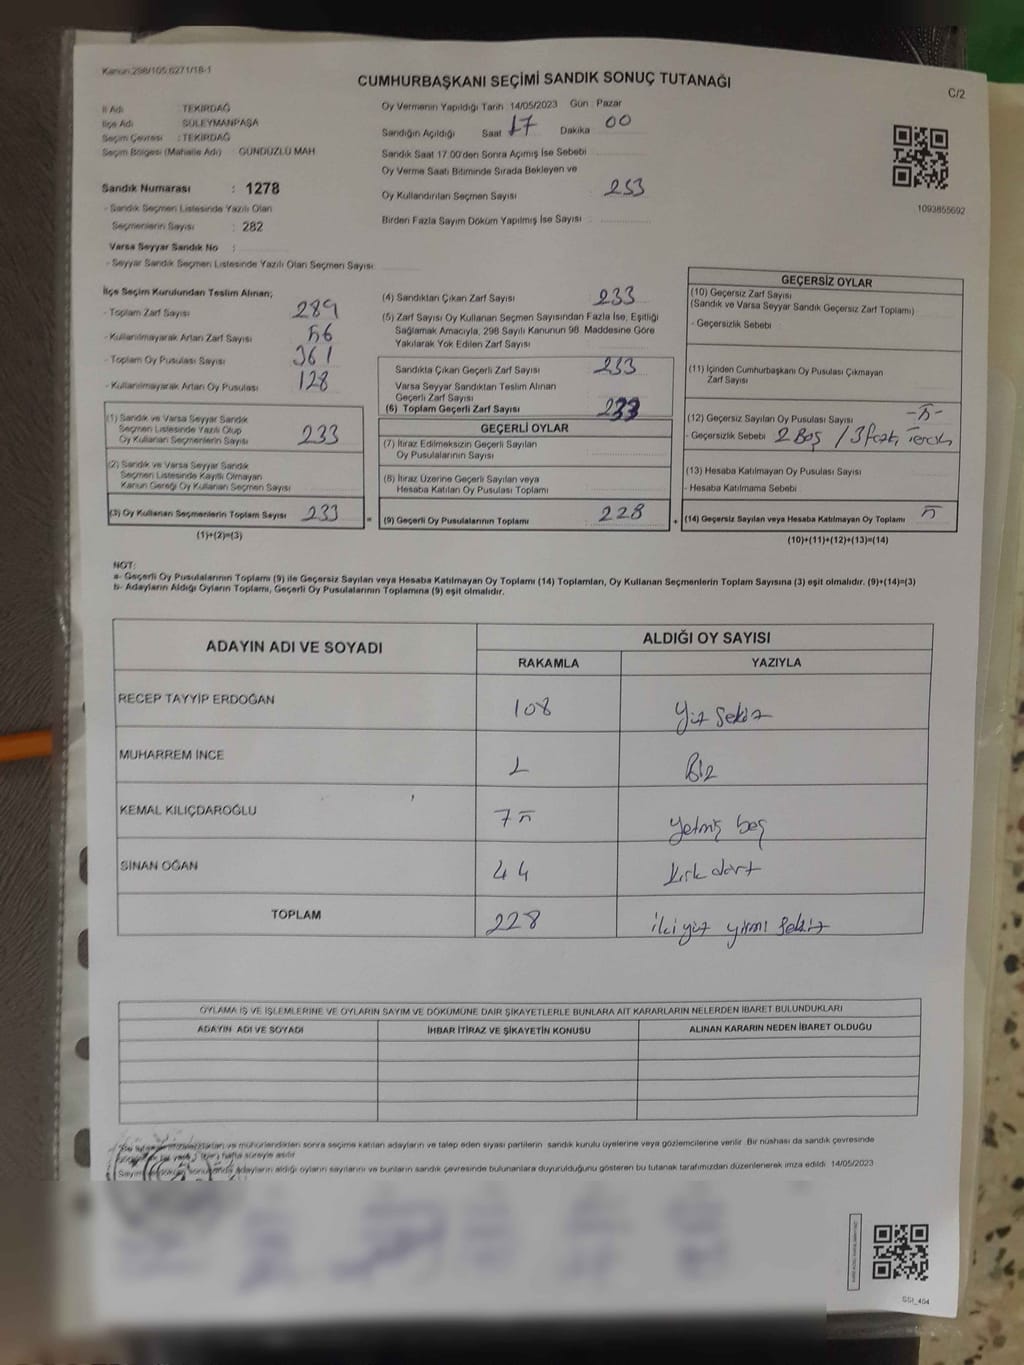 Kanun:298/105,6271/18-1
CUMHURBAŞKANI SEÇİMİ SANDIK SONUÇ TUTANAĞI
C/2
İl Adı : TEKİRDAĞ
İlçe Adı : SÜLEYMANPAŞA
Seçim Çevresi : TEKİRDAĞ
Seçim Bölgesi (Mahalle Adı) : GÜNDÜZLÜ MAH.
Sandık Numarası : 1278
- Sandık Seçmen Listesinde Yazılı Olan
Seçmenlerin Sayısı : 282
Varsa Seyyar Sandık No :
- Seyyar Sandık Seçmen Listesinde Yazılı Olan Seçmen Sayısı:
Oy Vermenin Yapıldığı Tarih :14/05/2023 Gün : Pazar
Sandığın Açıldığı Saat 17 Dakika 00
Sandık Saat 17.00'den Sonra Açımış İse Sebebi
Oy Verme Saati Bitiminde Sırada Bekleyen ve
Oy Kullandırılan Seçmen Sayısı 253
Birden Fazla Sayım Döküm Yapılmış İse Sayısı :
1093855692
İlçe Seçim Kurulundan Teslim Alınan;
- Toplam Zarf Sayısı 289
- Kullanılmayarak Artan Zarf Sayısı 56
- Toplam Oy Pusulası Sayısı 361
- Kullanılmayarak Artan Oy Pusulası 128
(1) Sandık ve Varsa Seyyar Sandık
Seçmen Listesinde Yazılı Olup
Oy Kullanan Seçmenlerin Sayısı 233
(2) Sandık ve Varsa Seyyar Sandık
Seçmen Listesinde Kayıtlı Olmayan
Kanun Gereği Oy Kullanan Seçmen Sayısı
(3) Oy Kullanan Seçmenlerin Toplam Sayısı 233
(1)+(2)=(3)
(4) Sandıktan Çıkan Zarf Sayısı 233
(5) Zarf Sayısı Oy Kullanan Seçmen Sayısından Fazla İse, Eşitliği
Sağlamak Amacıyla, 298 Sayılı Kanunun 98. Maddesine Göre
Yakılarak Yok Edilen Zarf Sayısı
Sandıkta Çıkan Geçerli Zarf Sayısı 233
Varsa Seyyar Sandıktan Teslim Alınan
Geçerli Zarf Sayısı
(6) Toplam Geçerli Zarf Sayısı 233
GEÇERLİ OYLAR
(7) İtiraz Edilmeksizin Geçerli Sayılan
Oy Pusulalarının Sayısı
(8) İtiraz Üzerine Geçerli Sayılan veya
Hesaba Katılan Oy Pusulası Toplamı
= (9) Geçerli Oy Pusulalarının Toplamı 228
GEÇERSİZ OYLAR
(10) Geçersiz Zarf Sayısı
(Sandık ve Varsa Seyyar Sandık Geçersiz Zarf Toplamı)
- Geçersizlik Sebebi
(11) İçinden Cumhurbaşkanı Oy Pusulası Çıkmayan
Zarf Sayısı
(12) Geçersiz Sayılan Oy Pusulası Sayısı -5-
- Geçersizlik Sebebi 2 Boş / 3 fazla
(13) Hesaba Katılmayan Oy Pusulası Sayısı
- Hesaba Katılmama Sebebi
+ (14) Geçersiz Sayılan veya Hesaba Katılmayan Oy Toplamı 5
(10)+(11)+(12)+(13)=(14)
NOT:
a- Geçerli Oy Pusulalarının Toplamı (9) ile Geçersiz Sayılan veya Hesaba Katılmayan Oy Toplamı (14) Toplamları, Oy Kullanan Seçmenlerin Toplam Sayısına (3) eşit olmalıdır. (9)+(14)=(3)
b- Adayların Aldığı Oyların Toplamı, Geçerli Oy Pusulalarının Toplamına (9) eşit olmalıdır.
ADAYIN ADI VE SOYADI
ALDIĞI OY SAYISI
RAKAMLA YAZIYLA
RECEP TAYYİP ERDOĞAN 108 Yüz sekiz
MUHARREM İNCE 1 Bir
KEMAL KILIÇDAROĞLU 75 yetmiş beş
SİNAN OĞAN 44 kırk dört
TOPLAM 228 iki yüz yirmi sekiz
OYLAMA İŞ VE İŞLEMLERİNE VE OYLARIN SAYIM VE DÖKÜMÜNE DAİR ŞİKAYETLERLE BUNLARA AİT KARARLARIN NELERDEN İBARET BULUNDUKLARI
ADAYIN ADI VE SOYADI İHBAR İTİRAZ VE ŞİKAYETİN KONUSU ALINAN KARARIN NEDEN İBARET OLDUĞU
ve mühürlendikten sonra seçime katılan adayların ve talep eden siyasi partilerin sandık kurulu üyelerine veya gözlemcilerine verilir. Bir nüshası da sandık çevresinde
hafta süreyle asılır.
adayların aldığı oyların sayılarını ve bunların sandık çevresinde bulunanlara duyurulduğunu gösteren bu tutanak tarafımızdan düzenlenerek imza edildi. 14/05/2023
SSI_404